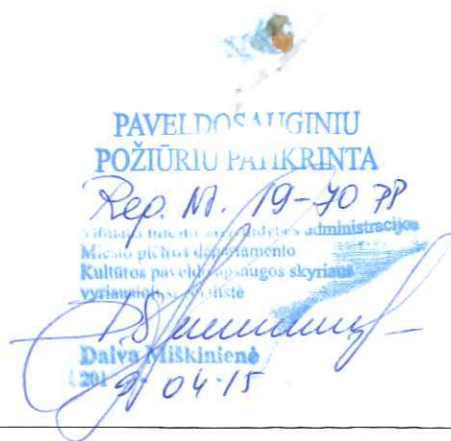 PAVELDOSAUGINIU
POŽIŪRIU PATIKRINTA
Reg. Nr. 19-70 PP
administracijos
Miesto plėtros departamento
Kultūros paveldo apsaugos skyriaus
vyriausioji specialistė
Daiva Miškinienė
2019-04-15